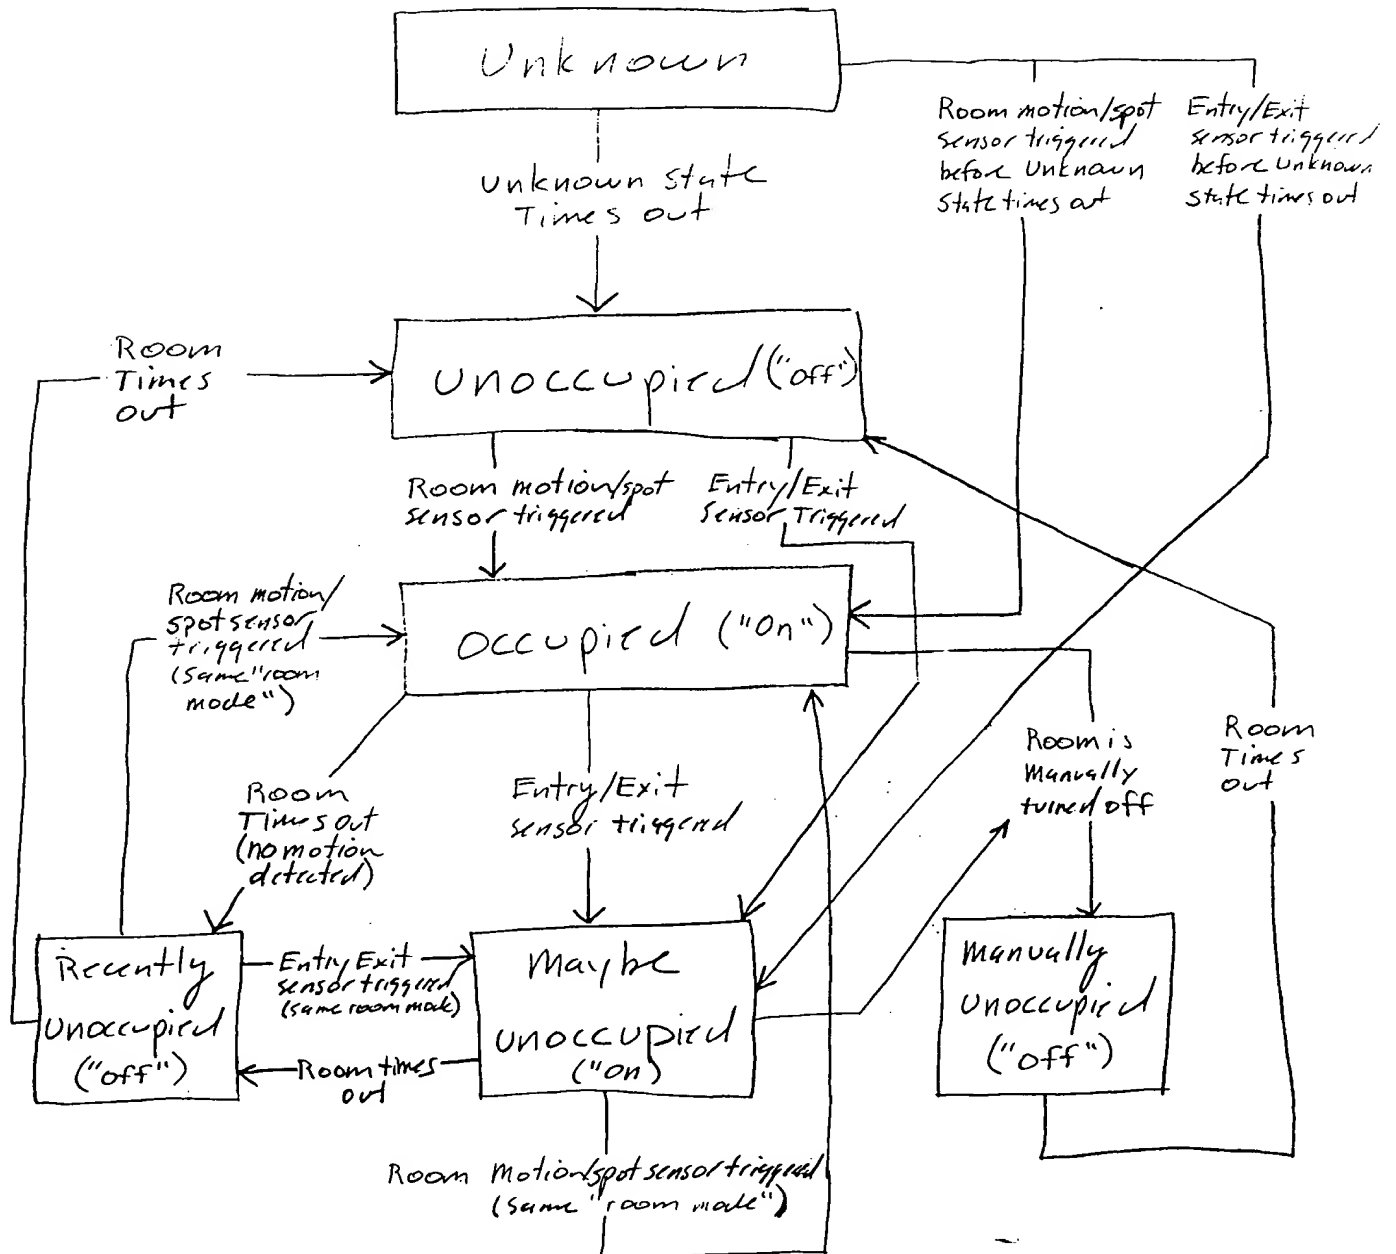 Unknown
Unknown State
Times out
Room motion/spot
sensor triggered
before Unknown
State times out
Entry/Exit
sensor triggered
before Unknown
state times out
Room
Times
out
Unoccupied ("off")
Room motion/spot
sensor triggered
Entry/Exit
Sensor Triggered
Room motion/
spot sensor
triggered
(same "room
mode")
Occupied ("On")
Room
Times out
(no motion
detected)
Entry/Exit
sensor triggered
Room is
Manually
turned off
Room
Times
out
Recently
Unoccupied
("off")
Entry Exit
sensor triggered
(same room mode)
Room times
out
Maybe
unoccupied
("On)
Manually
Unoccupied
("off")
Room Motion/spot sensor triggered
(same "room mode")